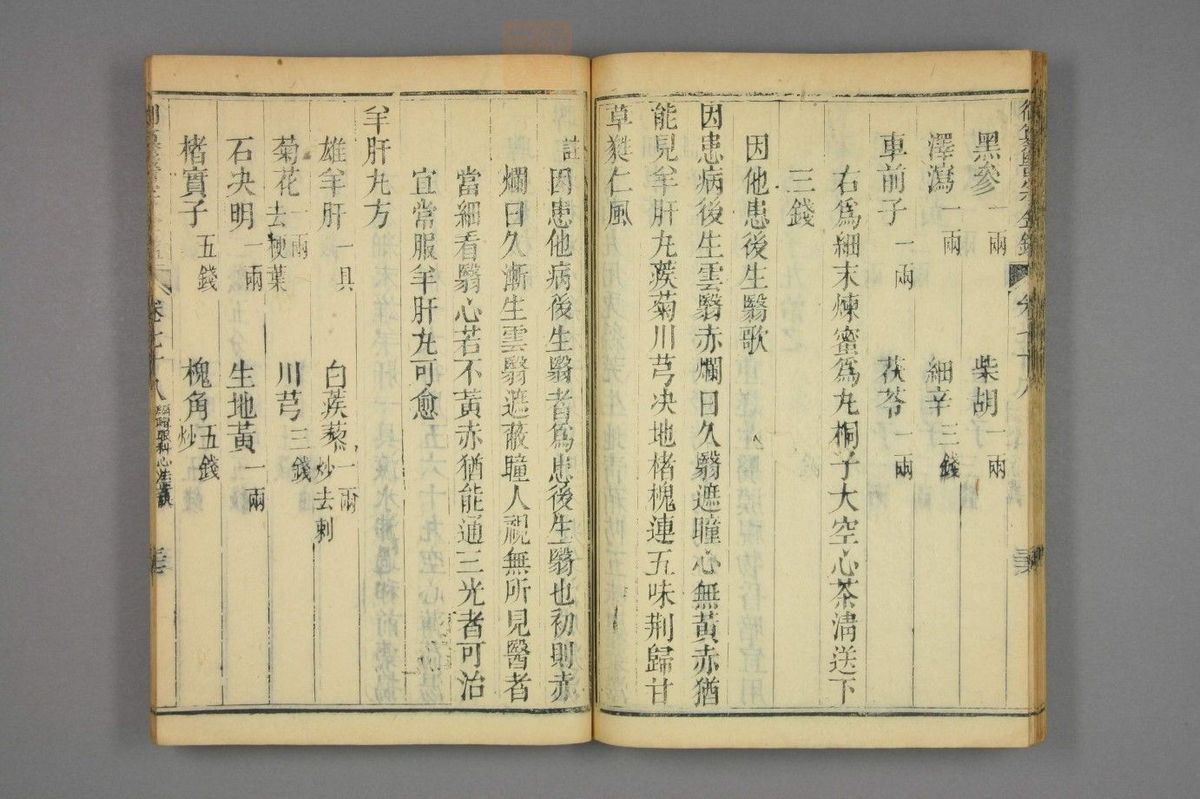 黑參一兩 柴胡一兩
澤瀉一兩 細辛三錢
車前子一兩 茯苓一兩
右爲細末煉蜜爲丸桐子大空心茶淸送下
三錢
因他患後生翳歌
因患病後生雲翳赤爛日久翳遮瞳心無黃赤猶
能見羊肝丸蒺菊川芎决地楮槐連五味荆歸甘
草蕤仁風
註因患他病後生翳者爲患後生翳也初則赤
爛日久漸生雲翳遮蔽瞳人視無所見醫者
當細看翳心若不黃赤猶能通三光者可治
宜常服羊肝丸可愈
羊肝丸方
雄羊肝一具 白蒺藜一兩炒去刺
菊花一兩去梗葉 川芎三錢
石决明一兩 生地黃一兩
楮實子五錢 槐角五錢炒
卷七十八